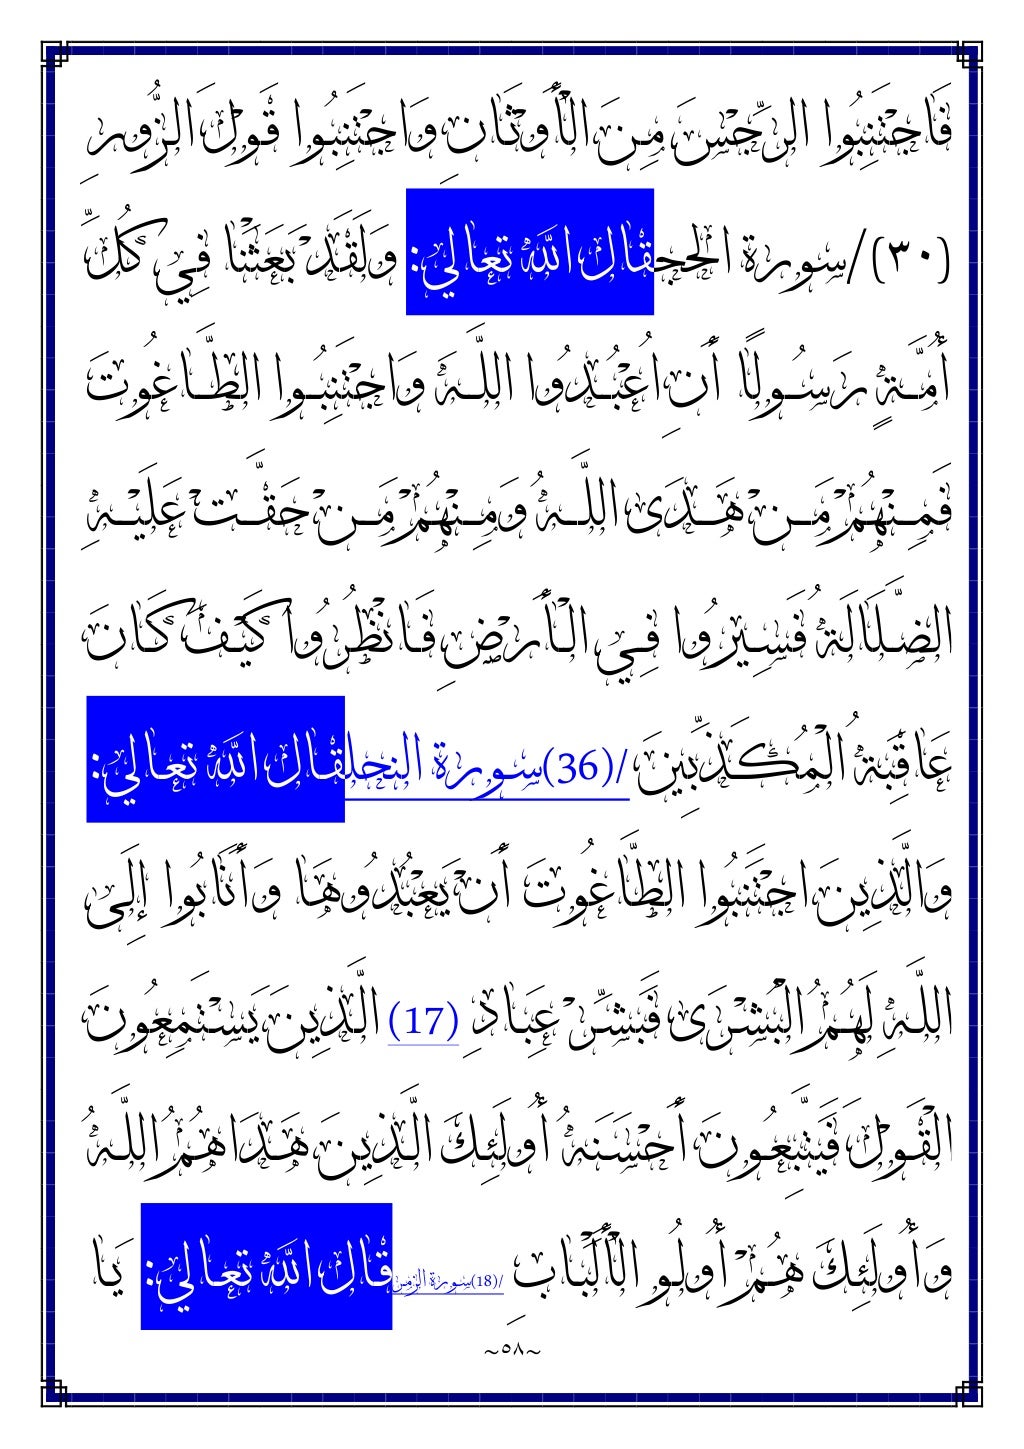 فَاجْتَنِبُوا الرِّجْسَ مِنَ الْأَوْثَانِ وَاجْتَنِبُوا قَوْلَ الزُّورِ
(٣٠)/سورة الحجقال الله تعالي: وَلَقَدْ بَعَثْنَا فِي كُلِّ
أُمَّةٍ رَسُولًا أَنِ اُعْبُدُوا اللَّهَ وَاجْتَنِبُوا الطَّاغُوتَ
فَمِنْهُمْ مَنْ هَدَى اللَّهُ وَمِنْهُمْ مَنْ حَقَّتْ عَلَيْهِ
الضَّلَالَةُ فَسِيرُوا فِي الْأَرْضِ فَانْظُرُوا كَيْفَ كَانَ
عَاقِبَةُ الْمُكَذِّبِينَ /(36)سورة النحلقال الله تعالي:
وَالَّذِينَ اجْتَنَبُوا الطَّاغُوتَ أَنْ يَعْبُدُوهَا وَأَنَابُوا إِلَى
اللَّهِ لَهُمُ الْبُشْرَى فَبَشِّرْ عِبَادِ (17) الَّذِينَ يَسْتَمِعُونَ
الْقَوْلَ فَيَتَّبِعُونَ أَحْسَنَهُ أُولَئِكَ الَّذِينَ هَدَاهُمُ اللَّهُ
وَأُولَئِكَ هُمْ أُولُو الْأَلْبَابِ /(18)سورة الزمرقال الله تعالي: يَا
~٥٨~